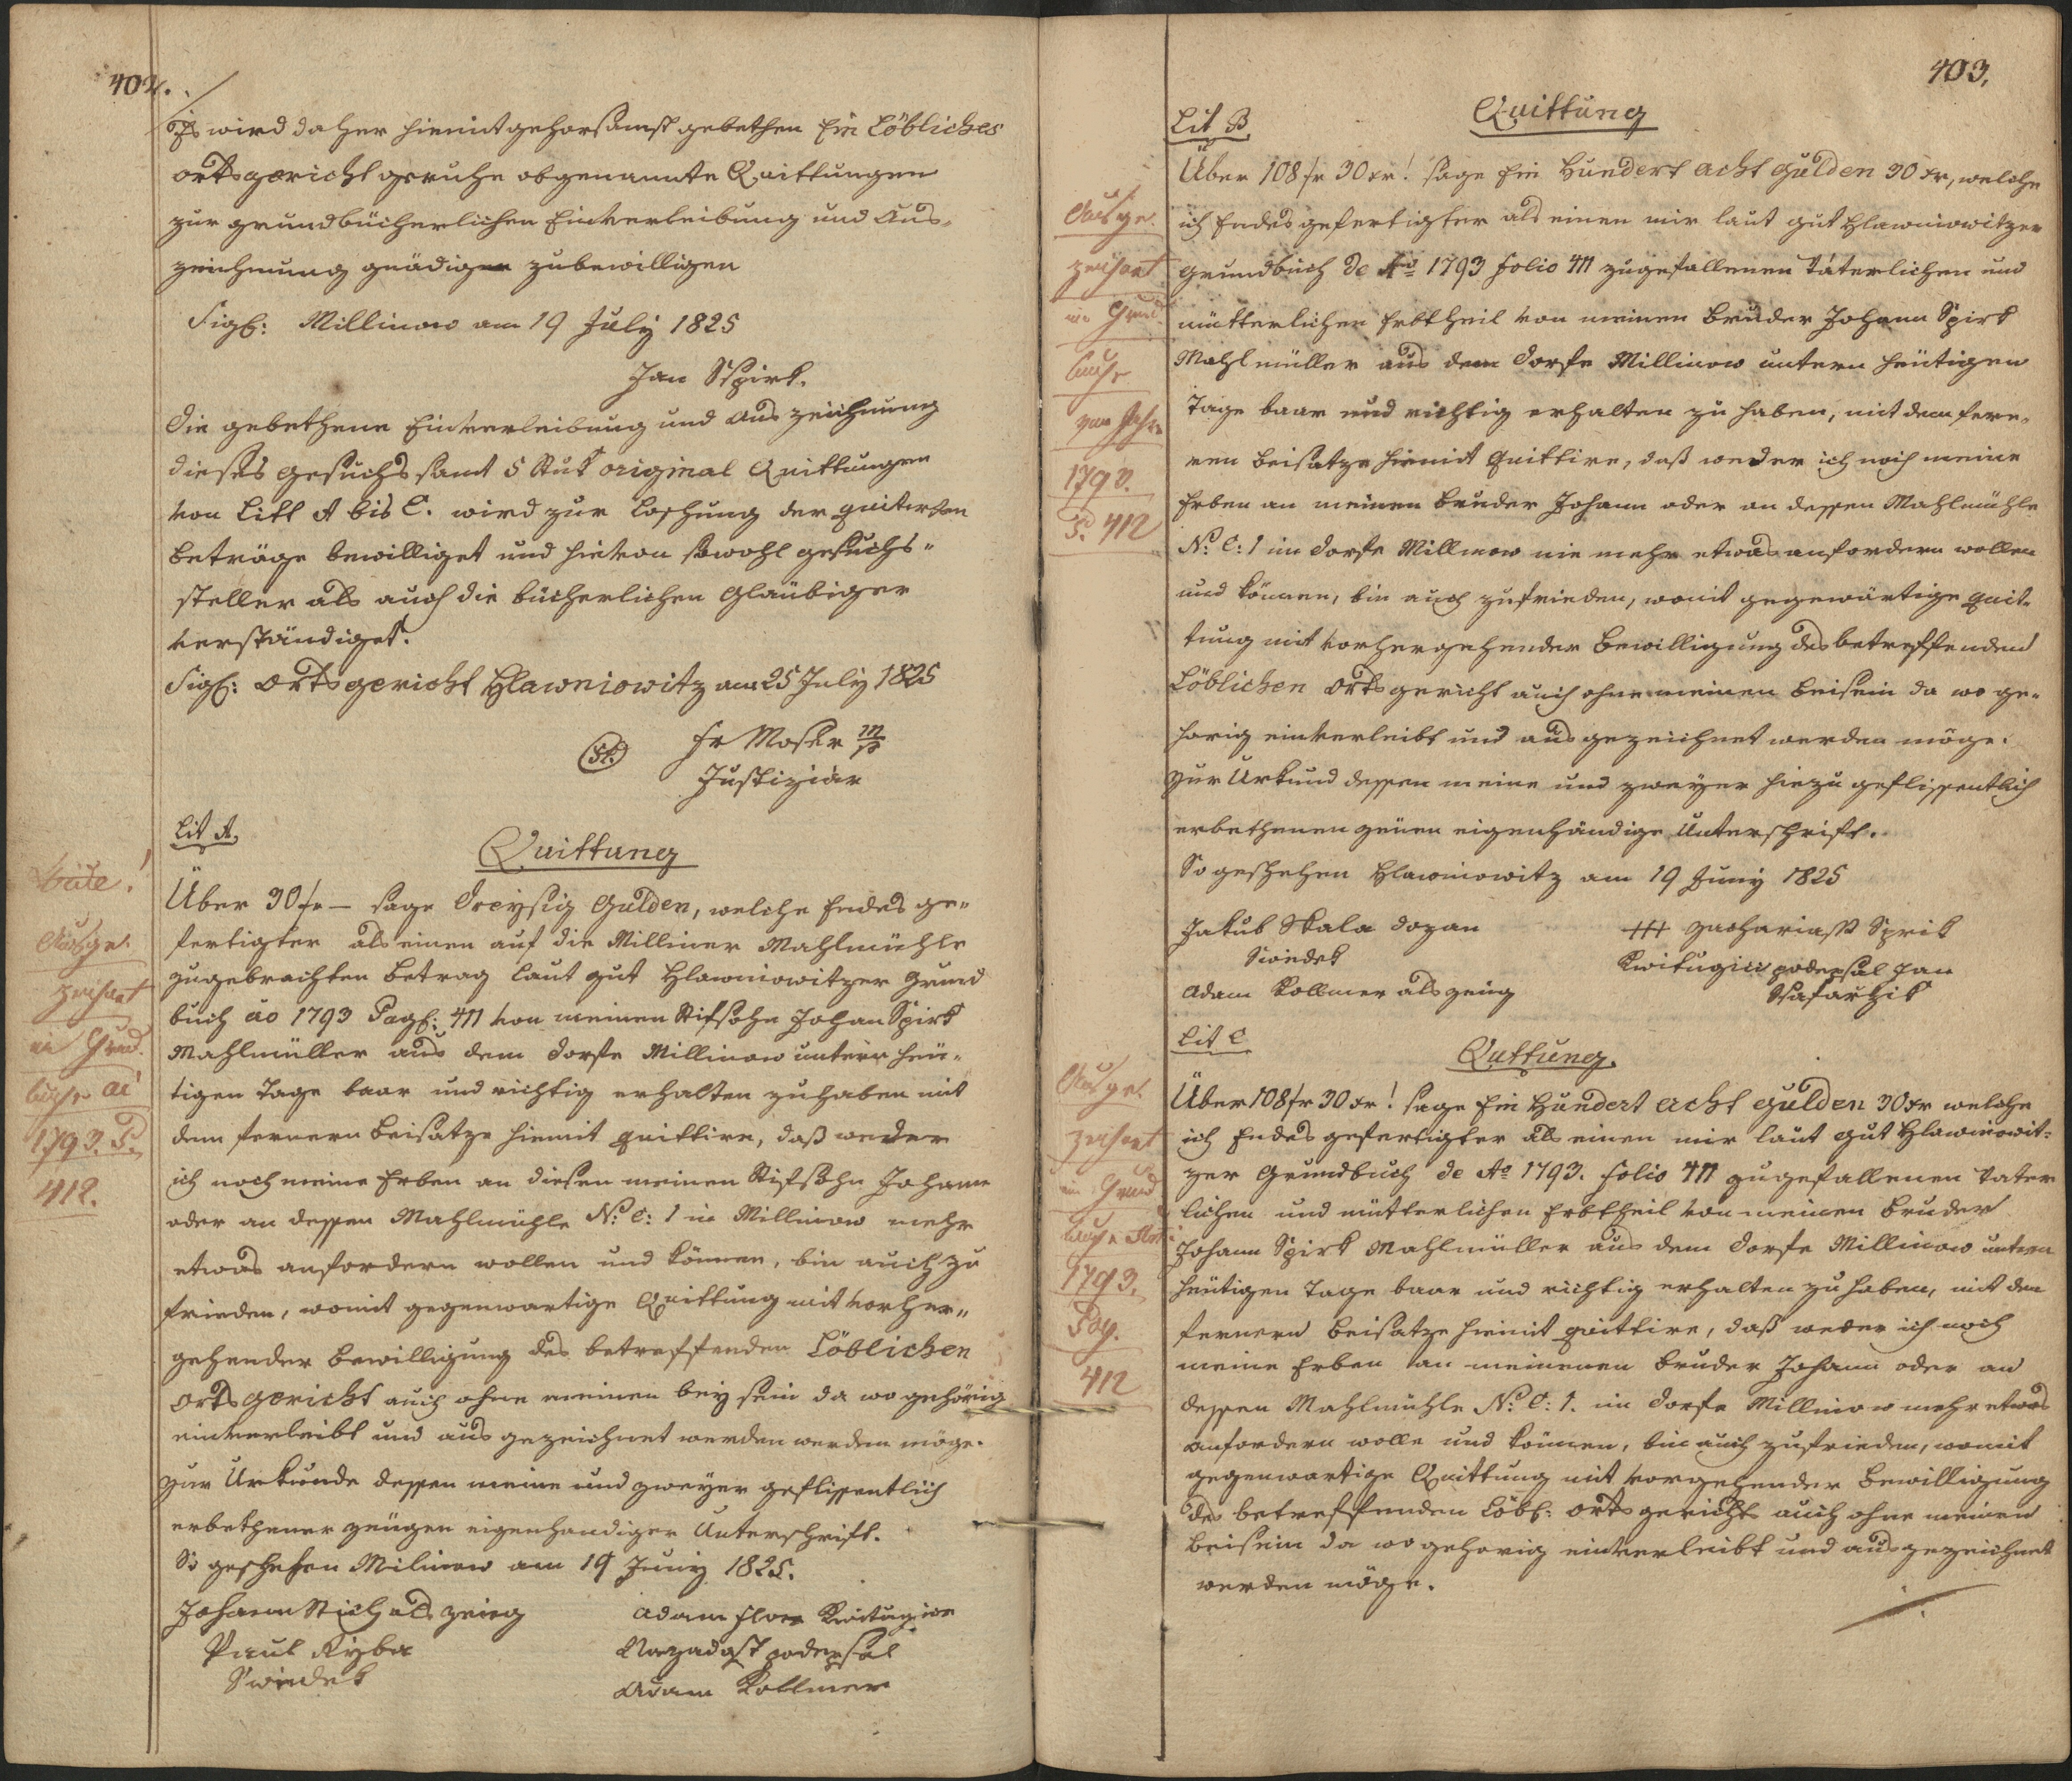 402.
Es wird daher hiemit gehorsamst gebethen Ein Löbliches
Ortsgericht geruhe obgenannte Quittungen
zur grundbücherlichen Einverleibung und Aus-
zeichnung gnädigen zubewilligen
Sigl: Millinow am 19 July 1825
Jan Sspirk.
Die gebethene Einverleibung und Auszeichnung
dieses Gesuchs samt 5 Stuk original Quittungen
von Litt A bis C. wird zur Loschung der quitirten
Beträge bewilliget und hievon sowohl Gesuchs-
steller als auch die bücherlichen Glaubiger
verständiget.
Sigl: Ortsgericht Hlawniowitz am 25 July 1825
Fr Moser m/p
Justiziär
Lit A.
Quittung
Über 30 fr — sage Dreysig Gulden, welche Endes ge-
fertigter als einen auf die Milliner Mahlmühle
zugebrachten Betrag laut Gut Hlawniowitzer Grund
buch ao 1793 Pagl: 411 von meinen Stifsohn Johan Spirk
Mahlmüller aus dem Dorfe Millinow unterm heu-
tigen Tage baar und richtig erhalten zuhaben mit
dem fernern Beisatze hiemit quittire, daß weder
ich noch meine Erben an diesen meinen Stifsohn Johann
oder an dessen Mahlmühle N: C: 1 in Millinow mehr
etwas anfordern wollen und können, bin auch zu
frieden, womit gegenwartige Quittung mit vorher-
gehender Bewilligung des betreffenden Löblichen
Ortsgericht auch ohne meinen beysein da wo gehörig
einverleibt und ausgezeichnet werden werden möge.
Zur Urkunde dessen meine und zweyer geflissentlich
erbethener zeugen eigenhandiger Unterschrift.
So geschehen Milinow am 19 Juny 1825.
Johann Stich als zeug
Paul Ryba
Swiedek
Adam Flor Kwitugicze
Nazadost podepsal
Adam Kollmer
Ausge-
zeichnet
im Grund-
buche ai
1793. P.
412.
403.
Lit B.
Quittung
Über 108 fr 30 xr! sage Ein Hundert Acht Gulden 30 xr, welche
ich Endesgefertigter als einen mir laut Gut Hlawniowitzer
Grundbuch de Ao 1793 folio 411 zugefallenen Väterlichen und
mütterlichen Erbtheil von meinen Bruder Johann Spirk
Mahlmüller aus dem Dorfe Millinow untern heutigen
Tage baar und richtig erhalten zu haben, mit dem fern-
ren Beisatze hiemit quittire, daß weder ich noch meine
Erben an meinen Bruder Johann oder an dessen Mahlmühle
N: C: 1 im Dorfe Millinow nie mehr etwas anfordern wollen
und können, bin auch zufrieden, womit gegenwärtige Quit-
tung mit vorhergehender Bewilligung des betreffenden
Löblichen Ortsgericht auch ohne meinen Beisein da wo ge-
hörig einverleibt und ausgezeichnet werden möge.
Zur Urkund dessen meine und zweyer hiezu geflissentlich
erbethenen zeugen eigenhändige Unterschrift.
So geschehen Hlawniowitz am 19 Juny 1825
Jakub Skala dozan
Swiedek
Adam Kollmer als zeug
+++ Zachariass Sprik
Kwitugici podepsal Jan
Ssafarzik
Ausge-
zeichnet
im Grund
buche
vom Jahre
1793.
P. 412
Lit C
Quttung.
Über 108 fr 30 xr! sage Ein Hundert Acht Gulden 30 xr welche
ich Endesgefertigter als einen mir laut Gut Hlawniowit-
zer Grundbuch de Ao 1793. folio 411 zugefallenen Vater
lichen und mütterlichen Erbtheil von meinen Bruder
Johann Spirk Mahlmüller aus dem Dorfe Millinow untern
heutigen Tage baar und richtig erhalten zu haben, mit dem
fernern Beisatze hiemit quittire, daß weder ich noch
meine Erben an meinenen Bruder Johann oder an
dessen Mahlmühle N: C: 1. im Dorfe Millinow mehr etwas
anfordern wolle und können, bin auch zufrieden, womit
gegenwartige Quittung mit vorgehender Bewilligung
des betreffenden Löbl: Ortsgerichts auch ohne meinen
Beisein da wo gehorig einverleibt und ausgezeichnet
werden möge.
Ausge-
zeichnet
im Grund
buche
1793.
Pag.
412